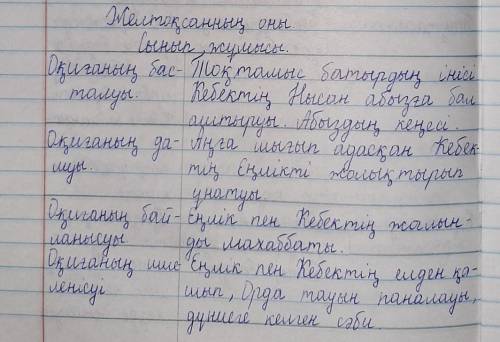 Желтоқсанның оны
Сынып жұмысы.
Оқиғаның бас- Тоқтамыс батырдың інісі
талуы. Кебектің Нысан абызға бал
аштыруы. Абыздың кеңесі.
Оқиғаның да- Аңға шығып адасқан Кебек-
муы. тің Еңлікті жолықтырып
ұнатуы.
Оқиғаның бай- Еңлік пен Кебектің жалын-
ланысуы ды махаббаты.
Оқиғаның шие- Еңлік пен Кебектің елден қа-
ленісуі шып, Орда тауын паналауы,
дүниеге келген сәби.